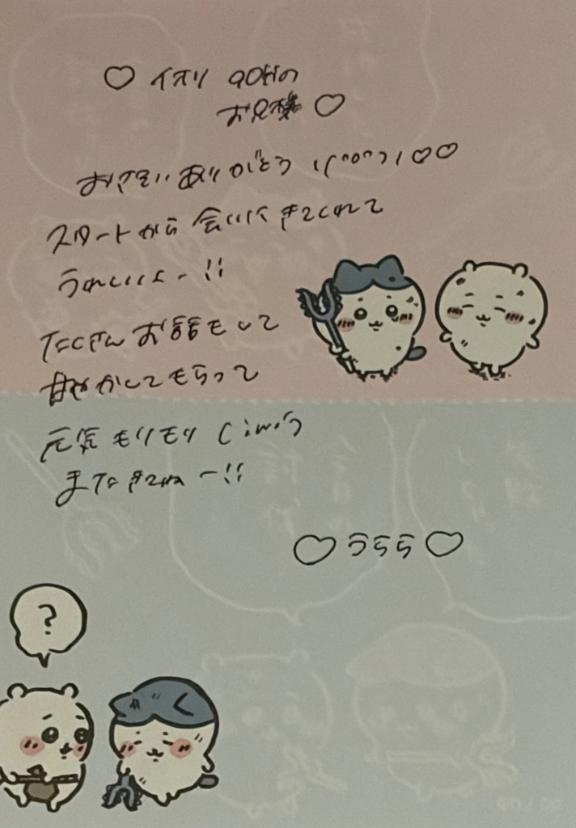 ♡ イオリ 90分の
お兄様 ♡
おさそいありがとう ♡♡
スタートから 会いにきてくれて
うれしいよー!!
たくさんお話をして
甘やかしてもらって
元気 モリモリ
またきてねー!!
♡ うらら ♡
?